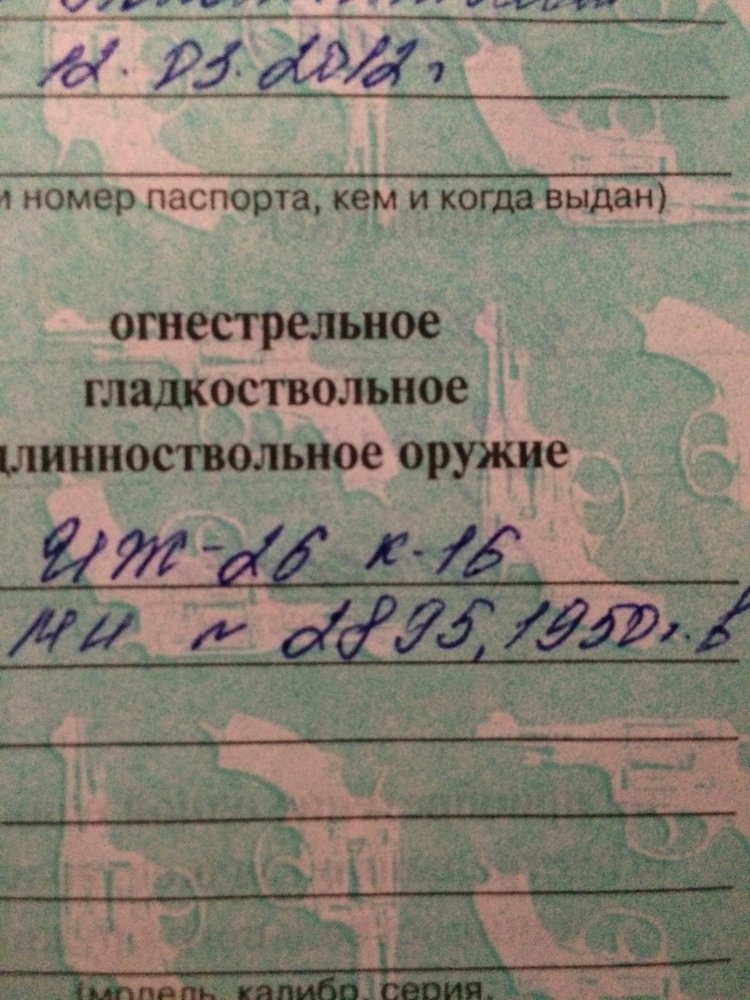 12. 03. 2012г
и номер паспорта, кем и когда выдан)
огнестрельное
гладкоствольное
длинноствольное оружие
ИЖ-26 к-16
МН № 2895, 1950г.в
(модель, калибр, серия,